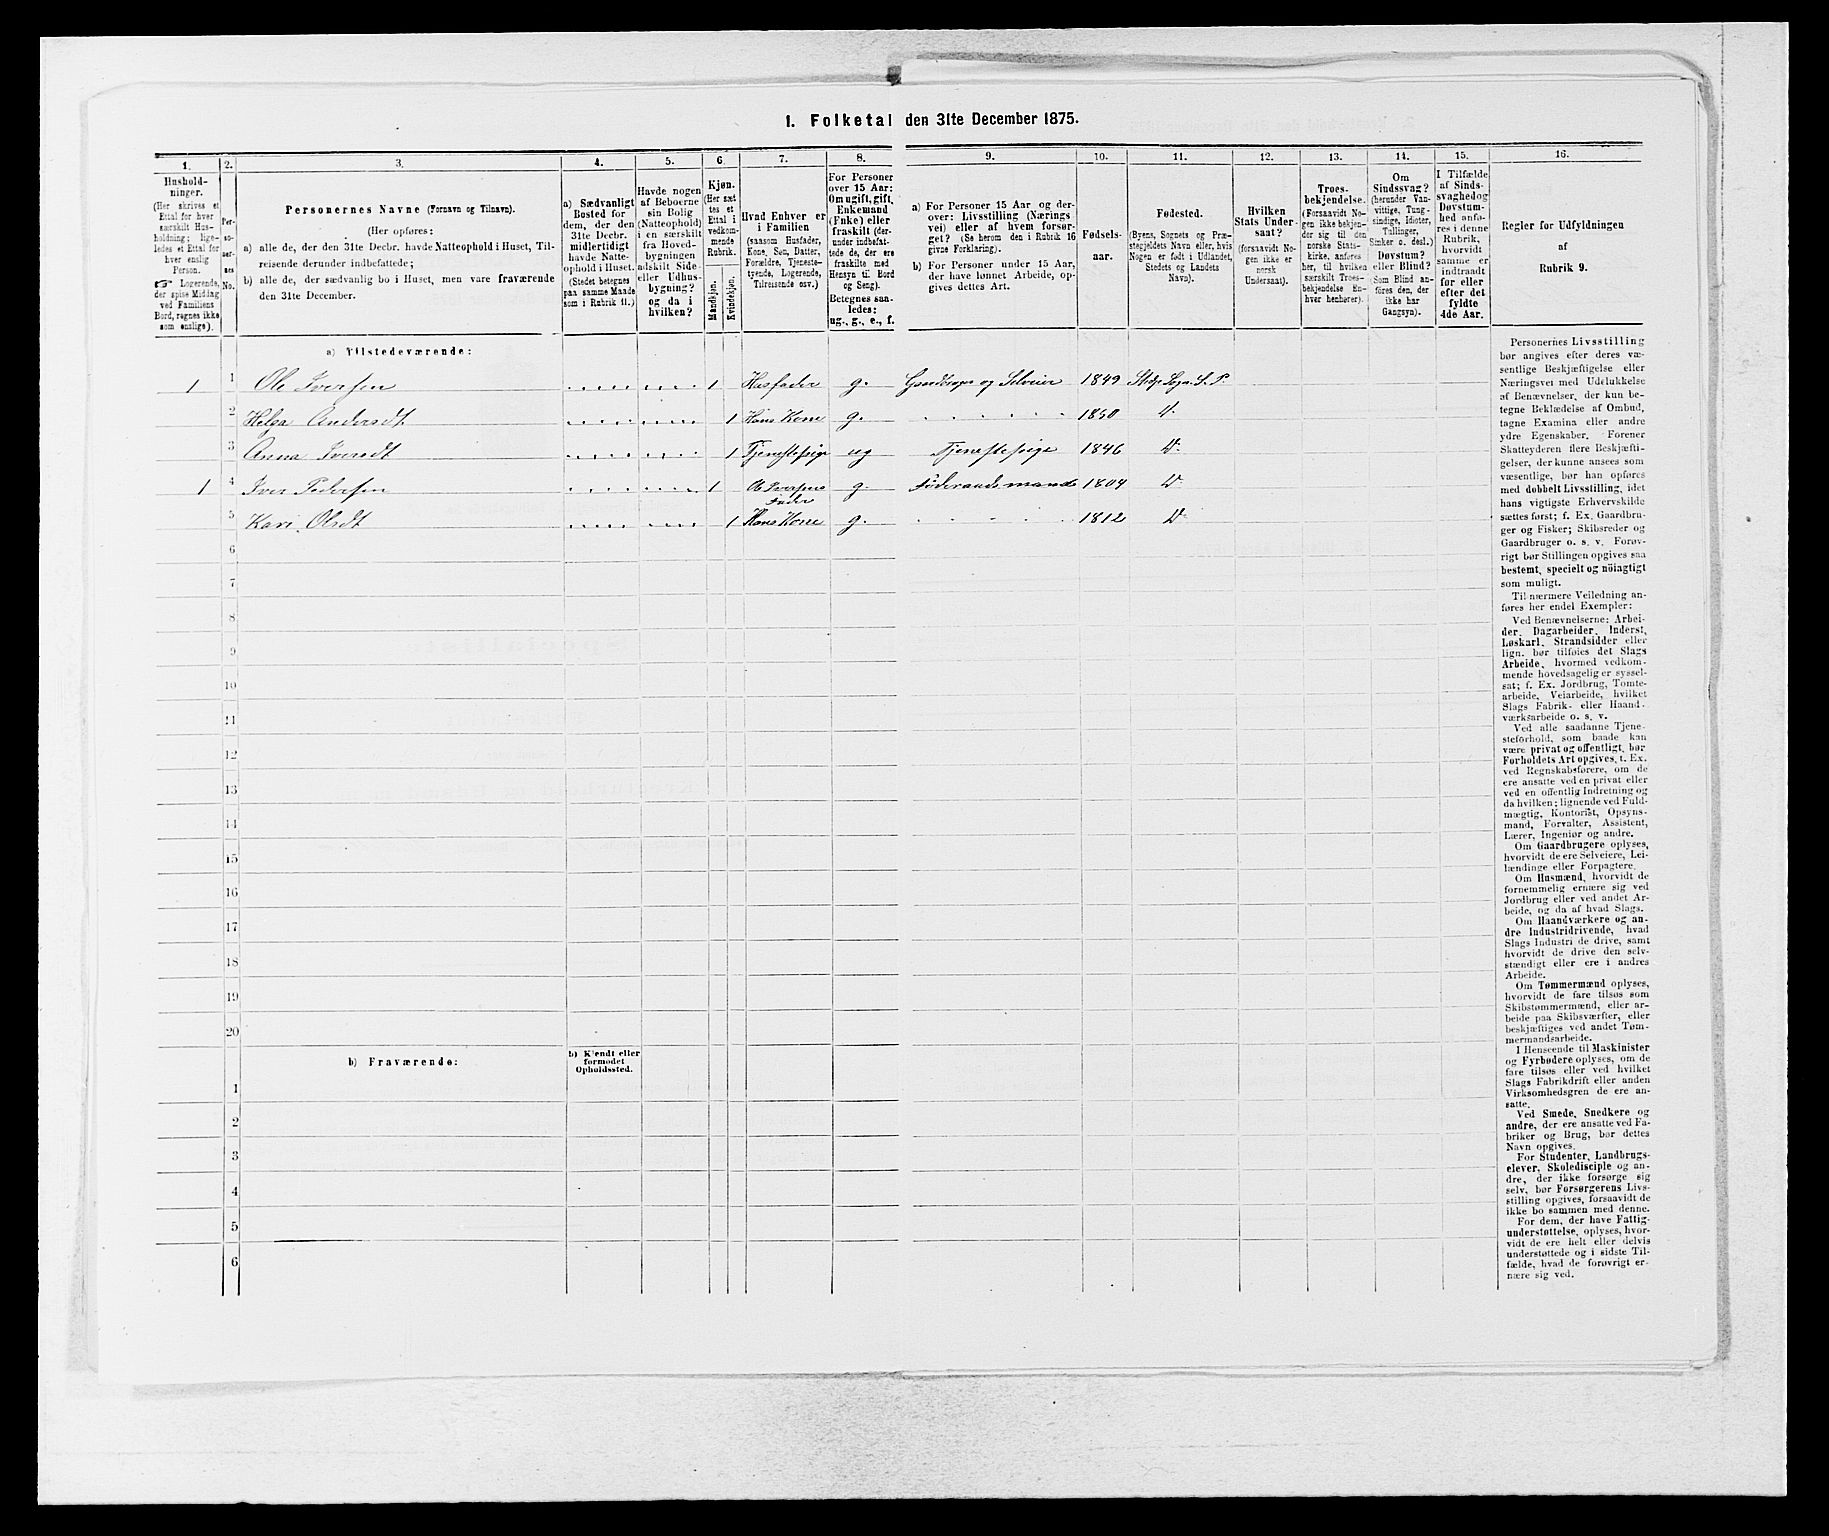 1. Folketal den 31te December 1875.
1. 2. 3. 4. 5. 6. 7. 8. 9. 10. 11. 12. 13. 14. 15. 16.
Hushold-
ninger.
(Her skrives et
Ettal for hver
særskilt Hus-
holdning; lige-
ledes et Ettal for
hver enslig
Person.
☞ Logerende,
der spise Middag
ved Familiens
Bord, regnes ikke
som enslige).
Per-
so-
ner-
nes
No.
Personernes Navne (Fornavn og Tilnavn).
(Her opføres:
a) alle de, der den 31te Decbr. havde Natteophold i Huset, Til-
reisende derunder indbefattede;
b) alle de, der sædvanlig bo i Huset, men vare fraværende
den 31te December.
a) Sædvanligt
Bosted for
dem, der den
31te Decbr.
midlertidigt
havde Natte-
ophold i Huset.
(Stedet betegnes
paa samme Maade
som i Rubrik 11.)
Havde nogen
af Beboerne
sin Bolig
(Natteophold)
i en særskilt
fra Hoved-
bygningen
adskilt Side-
eller Udhus-
bygning?
og da i
hvilken?
Kjøn.
(Her sæt-
tes et
Ettal i
vedkom-
mende
Rubrik.
Mandkjøn.
Kvindekjøn.
Hvad Enhver er
i Familien
(saasom Husfader,
Kone, Søn, Datter,
Forældre, Tjeneste-
tyende, Logerende,
Tilreisende osv.)
For Personer
over 15 Aar:
Om ugift, gift,
Enkemand
(Enke) eller
fraskilt (der-
under indbefat-
tede de, der ere
fraskilte med
Hensyn til Bord
og Seng).
Betegnes saa-
ledes:
ug., g., e., f.
a) For Personer 15 Aar og der-
over: Livsstilling (Nærings
vei) eller af hvem forsør-
get? (Se herom den i Rubrik 16
givne Forklaring).
b) For Personer under 15 Aar,
der have lønnet Arbeide, op-
gives dettes Art.
Fødsels-
aar.
Fødested.
(Byens, Sognets og Præ-
stegjeldets Navn eller, hvis
Nogen er født i Udlandet,
Stedets og Landets
Navn).
Hvilken
Stats Under-
saat?
(forsaavidt No-
gen ikke er
norsk
Undersaat).
Troes-
bekjendelse.
(Forsaavidt No-
gen ikke bekjen-
der sig til den
norske Stats-
kirke, anføres
her, til hvilken
særskilt Troes-
bekjendelse En-
hver henhører).
Om
Sindssvag?
(herunder Van-
vittige, Tung-
sindige, Idioter,
Sinker o. desl.)
Døvstum?
eller Blind?
(Som Blind an-
føres den, der
ikke har
Gangsyn).
I Tilfælde
af Sinds-
svaghed og
Døvstum-
hed anfø-
res i denne
Rubrik,
hvorvidt
samme er
indtraadt
før eller
efter det
fyldte
4de Aar.
Regler for Udfyldningen
af
Rubrik 9.
a) Tilstedeværende:
1 1 Ole Iversen 1 Husfader g. Gaardbruger og Selveier 1849 L. P.
2 Helga Andersdt 1 Hans Kone g. 1850 D.
3 Anna Iversdt 1 Tjenestepige ug Tjenestepige 1846 D.
1 4 Iver Pedersen 1 Ole Iversens Fader g. Føderaadsmand 1804 D.
5 Kari Olsdt 1 Hans Kone g. 1812 D.
6
7
8
9
10
11
12
13
14
15
16
17
18
19
20
b) Fraværende:
b) Kjendt eller
formodet
Opholdssted.
1
2
3
4
5
6
Personernes Livsstilling
bør angives efter deres væ-
sentlige Beskjæftigelse eller
Næringsvei med Udelukkelse
af Benævnelser, der kun be-
tegne Beklædelse af Ombud,
tagne Examina eller andre
ydre Egenskaber. Forener
Skatteyderen flere Beskjæfti-
gelser, der kunne ansees som
væsentlige, bør han opføres
med dobbelt Livsstilling, idet
hans vigtigste Erhvervskilde
sættes først; f. Ex. Gaardbru-
ger og Fisker; Skibsreder og
Gaardbruger o. s. v. Forøv-
rigt bør Stillingen opgives saa
bestemt, specielt og nøiagtigt
som muligt.
Til nærmere Veiledning an-
føres her endel Exempler:
Ved Benævnelserne: Arbei-
der, Dagarbeider, Inderst,
Løskarl, Strandsidder eller
lign. bør tilføies det Slags
Arbeide, hvormed vedkom-
mende hovedsagelig er syssel-
sat; f. Ex. Jordbrug, Tomte-
arbeide, Veiarbeide, hvilket
Slags Fabrik- eller Haand-
værksarbeide o. s. v.
Ved alle saadanne Tjene-
steforhold, som baade kan
være privat og offentligt, bør
Forholdets Art opgives, f. Ex.
ved Regnskabsførere, om de
ere ansatte ved en privat eller
ved en offentlig Indretning og
da hvilken; lignende ved Fuld-
mægtig, Kontorist, Opsyns-
mand, Forvalter, Assistent,
Lærer, Ingeniør og andre.
Om Gaardbrugere oplyses,
hvorvidt de ere Selveiere, Lei-
lændinge eller Forpagtere.
Om Husmænd, hvorvidt de
fornemmelig ernære sig ved
Jordbrug eller ved andet Ar-
beide, og da af hvad Slags.
Om Haandværkere og an-
dre Industridrivende, hvad
Slags Industri de drive, samt
hvorvidt de drive den selv-
stændigt eller ere i andres
Arbeide.
Om Tømmermænd oplyses,
hvorvidt de fare tilsøs som
Skibstømmermænd, eller ar-
beide paa Skibsværfter, eller
beskjæftiges ved andet Tøm-
mermandsarbeide.
I Henseende til Maskinister
og Fyrbødere oplyses, om de
fare tilsøs eller ved hvilket
Slags Fabrikdrift eller anden
Virksomhedsgren de ere an-
satte.
Ved Smede, Snedkere og
andre, der ere ansatte ved Fa-
briker og Brug, bør dettes
Navn opgives.
For Studenter, Landbrugs-
elever, Skoledisciple og an-
dre, der ikke forsørge sig
selv, bør Forsørgerens Livs-
stilling opgives, forsaavidt de
ikke bo sammen med denne.
For dem, der have Fattig-
understøttelse, oplyses, hvor-
vidt de ere helt eller delvis
understøttede og i sidste Til-
fælde, hvad de forøvrigt er-
nære sig ved.